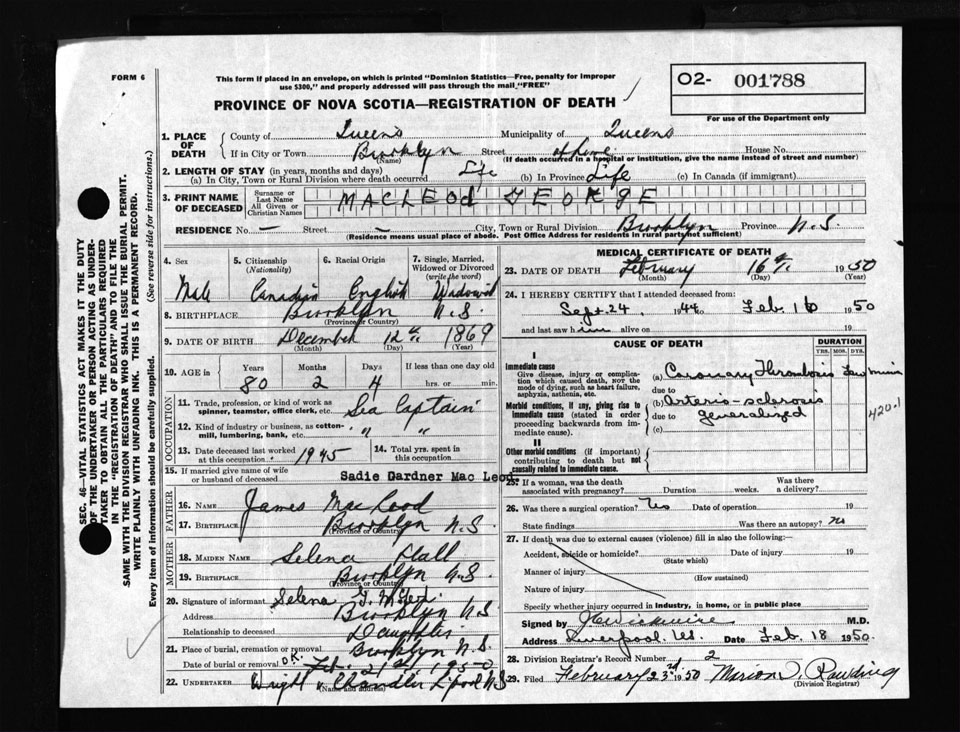 FORM 6
This form if placed in an envelope, on which is printed "Dominion Statistics—Free, penalty for improper
use $300," and properly addressed will pass through the mail "FREE"
O2- 001788
For use of the Department only
PROVINCE OF NOVA SCOTIA—REGISTRATION OF DEATH
SEC. 46—VITAL STATISTICS ACT MAKES IT THE DUTY
OF THE UNDERTAKER OR PERSON ACTING AS UNDER-
TAKER TO OBTAIN ALL THE PARTICULARS REQUIRED
IN THE "REGISTRATION OF DEATH" AND TO FILE THE
SAME WITH THE DIVISION REGISTRAR WHO SHALL ISSUE THE BURIAL PERMIT.
WRITE PLAINLY WITH UNFADING INK. THIS IS A PERMANENT RECORD.
Every item of information should be carefully supplied. (See reverse side for instructions.)
1. PLACE OF DEATH
County of Queens Municipality of Queens
If in City or Town Brooklyn Street at home House No.
(Name) (If death occurred in a hospital or institution, give the name instead of street and number)
2. LENGTH OF STAY (in years, months and days)
(a) In City, Town or Rural Division where death occurred Life (b) In Province Life (c) In Canada (if immigrant)
3. PRINT NAME OF DECEASED
Surname or Last Name
All Given or Christian Names
MACLEOd GEORGE
RESIDENCE No. — Street — City, Town or Rural Division Brooklyn Province N.S
(Residence means usual place of abode. Post Office Address for residents in rural parts not sufficient)
4. Sex
Male
5. Citizenship (Nationality)
Canadian
6. Racial Origin
English
7. Single, Married, Widowed or Divorced (write the word)
Widowed
8. BIRTHPLACE Brooklyn N.S.
(Province or Country)
9. DATE OF BIRTH December 12th 1869
(Month) (Day) (Year)
10. AGE in Years Months Days If less than one day old
80 2 4 hrs. or min.
OCCUPATION
11. Trade, profession or kind of work as
spinner, teamster, office clerk, etc. Sea Captain
12. Kind of industry or business, as cotton-
mill, lumbering, bank, etc. " "
13. Date deceased last worked at this occupation 1945
14. Total yrs. spent in this occupation
15. If married give name of wife or husband of deceased Sadie Gardner Mac Leod
FATHER
16. NAME James MacLeod
17. BIRTHPLACE Brooklyn N.S.
(Province or Country)
MOTHER
18. MAIDEN NAME Selena Hall
19. BIRTHPLACE Brooklyn N.S.
(Province or Country)
20. Signature of informant Selena
Address Brooklyn N.S
Relationship to deceased Daughter
21. Place of burial, cremation or removal Brooklyn N.S.
Date of burial or removal O.K. Feb. 21st 1950
22. UNDERTAKER Wright & Chandler L'pool NS
(Name and address)
MEDICAL CERTIFICATE OF DEATH
23. DATE OF DEATH February 16th 1950
(Month) (Day) (Year)
24. I HEREBY CERTIFY that I attended deceased from:
Sept. 24, 1944 to Feb. 16 1950
and last saw him alive on 19
CAUSE OF DEATH
DURATION
YRS. MOS. DYS.
I
Immediate cause
Give disease, injury or compli-
cation which caused death, not the
mode of dying, such as heart failure,
asphyxia, asthenia, etc.
(a) Coronary Thrombosis few min
due to
Morbid conditions, if any, giving rise to
immediate cause (stated in order
proceeding backwards from im-
mediate cause).
(b) Arterio-sclerosis
due to generalized
(c)
420.1
II
Other morbid conditions (if important)
contributing to death but not
causally related to immediate cause.
25. If a woman, was the death
associated with pregnancy? Duration weeks. Was there a delivery?
26. Was there a surgical operation? No Date of operation 19
State findings Was there an autopsy? no
27. If death was due to external causes (violence) fill in also the following:—
Accident, suicide or homicide? Date of injury 19
(State which)
Manner of injury
(How sustained)
Nature of injury
Specify whether injury occurred in industry, in home, or in public place
Signed by J C Wickwire M.D.
Address Liverpool N.S. Date Feb. 18 1950.
28. Division Registrar's Record Number 2
29. Filed February 23rd 1950 Marion Rawding
(Division Registrar)